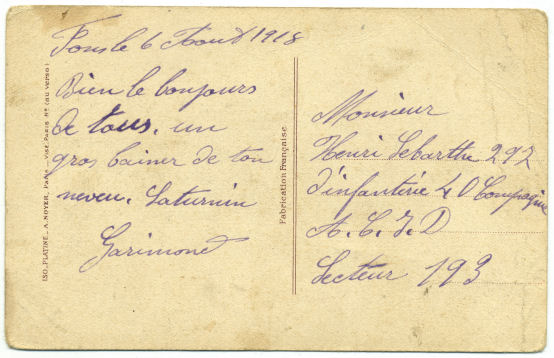 Fons le 6 Aout 1918
Bien le bonjours
de tous. un
gros bainer de ton
neveu. Saturnin
Garimond
Monsieur
Henri Lebarthe 292
d'infanterie 40 Compagnie
A. C. I. D
Secteur 193
Fabrication Française
ISO. PLATINE _ A. NOYER, Paris _ VISÉ, PARIS Nº (au verso)